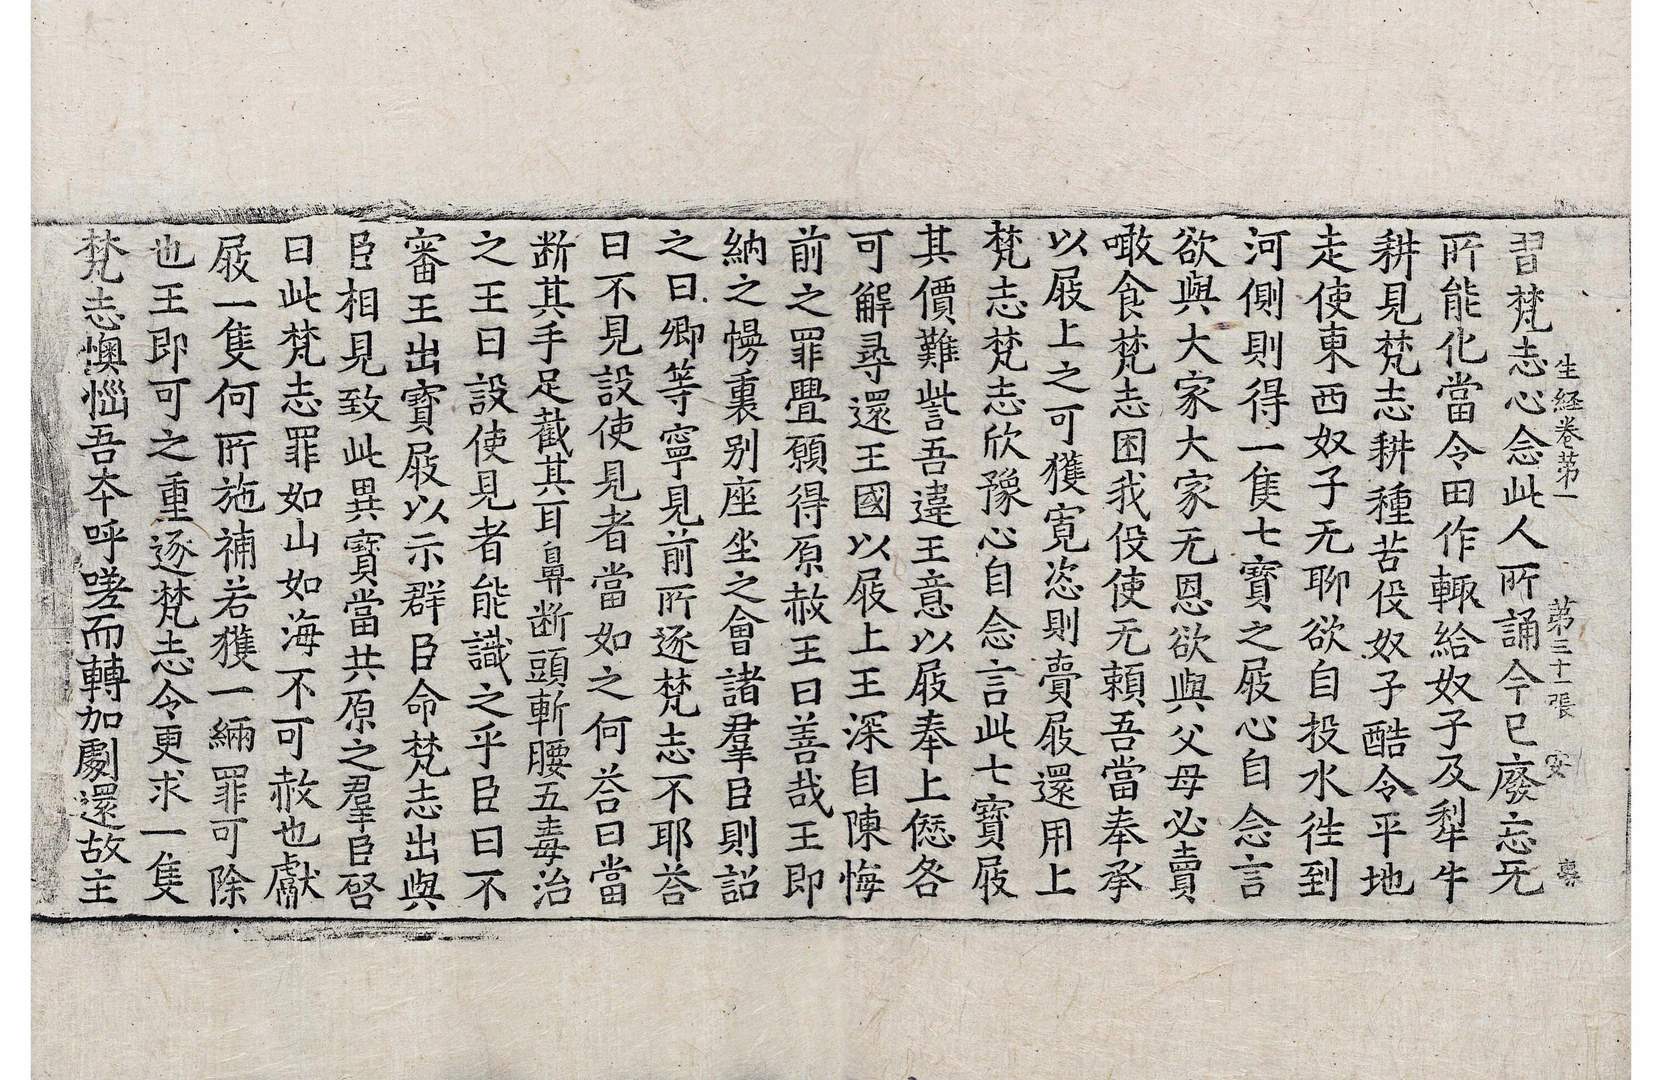 生経卷第一 第三十一張 安
習梵志心念此人所誦今已廢忘旡
所能化當令田作輙給奴子及犁牛
耕見梵志耕種苦役奴子酷令平地
走使東西奴子无聊欲自投水徃到
河側則得一隻七寳之屐心自念言
欲與大家大家无恩欲與父母必賣
噉食梵志困我役使无頼吾當奉承
以屐上之可獲寛恣則賣屐還用上
梵志梵志欣豫心自念言此七寳屐
其價難訾吾違王意以屐奉上愆各
可解尋還王國以屐上王深自陳悔
前之罪舋願得原赦王曰善哉王即
納之幔裏别座坐之會諸羣臣則詔
之曰卿等寧見前所逐梵志不耶荅
曰不見設使見者當如之何荅曰當
断其手足截其耳鼻断頭斬腰五毒治
之王曰設使見者能識之乎臣曰不
審王出寳屐以示群臣命梵志出與
臣相見致此異寳當共原之羣臣啓
曰此梵志罪如山如海不可赦也獻
屐一隻何所施補若獲一緉罪可除
也王即可之重逐梵志令更求一隻
梵志懊惱吾本呼嗟而轉加劇還故主